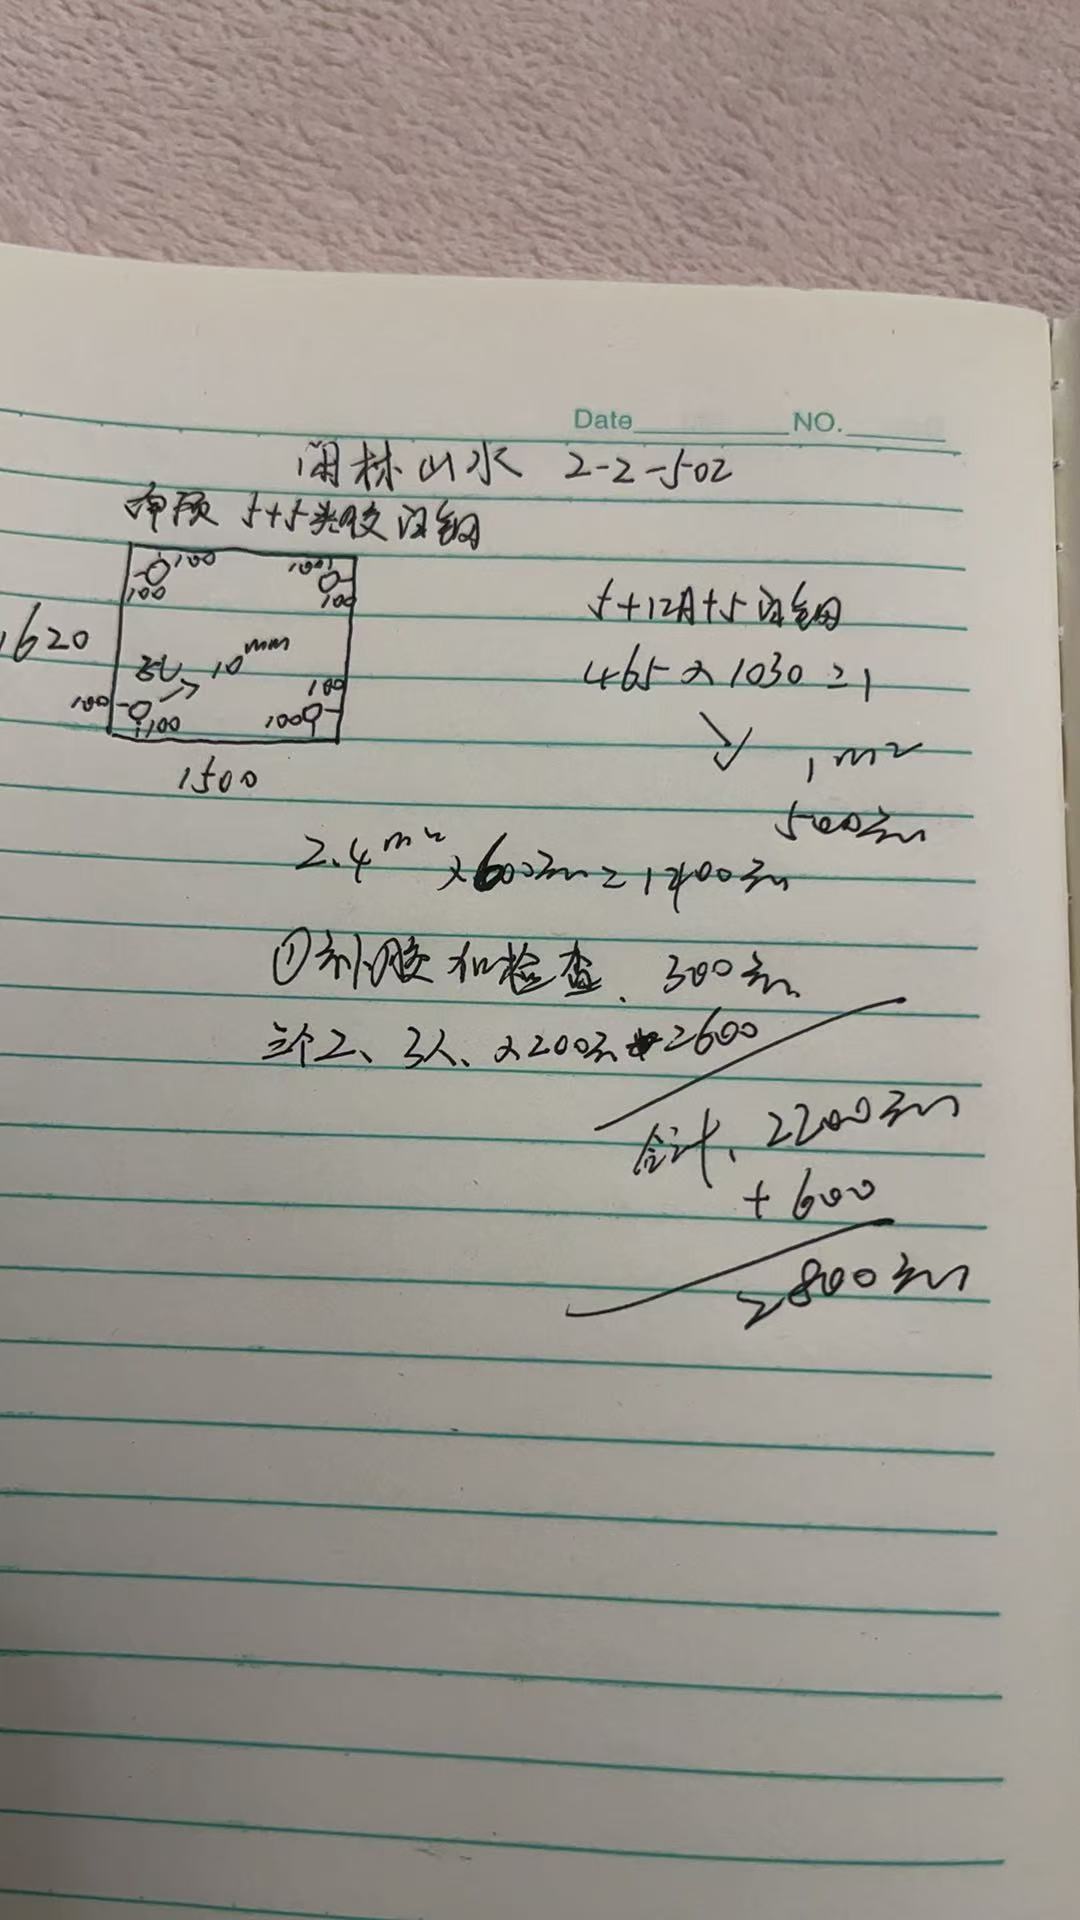 Date NO.
闲林山水 2-2-502
雨顶 5+5夹胶 钢
100 100
100 100
1620
孔 10mm
100 100
100 100
1500
5+12A+5 钢
465×1030=1
1m²
500元
2.4m²×600元=1400元
①补胶和检查、300元
三个工、3人、×200元=600
合计、2200元
+600
2800元